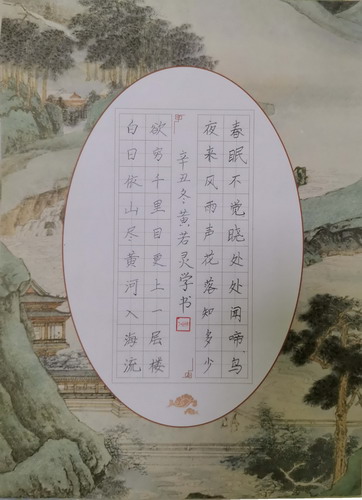 春眠不觉晓处处闻啼鸟
夜来风雨声花落知多少
辛丑冬黄若灵学书
欲穷千里目更上一层楼
白日依山尽黄河入海流